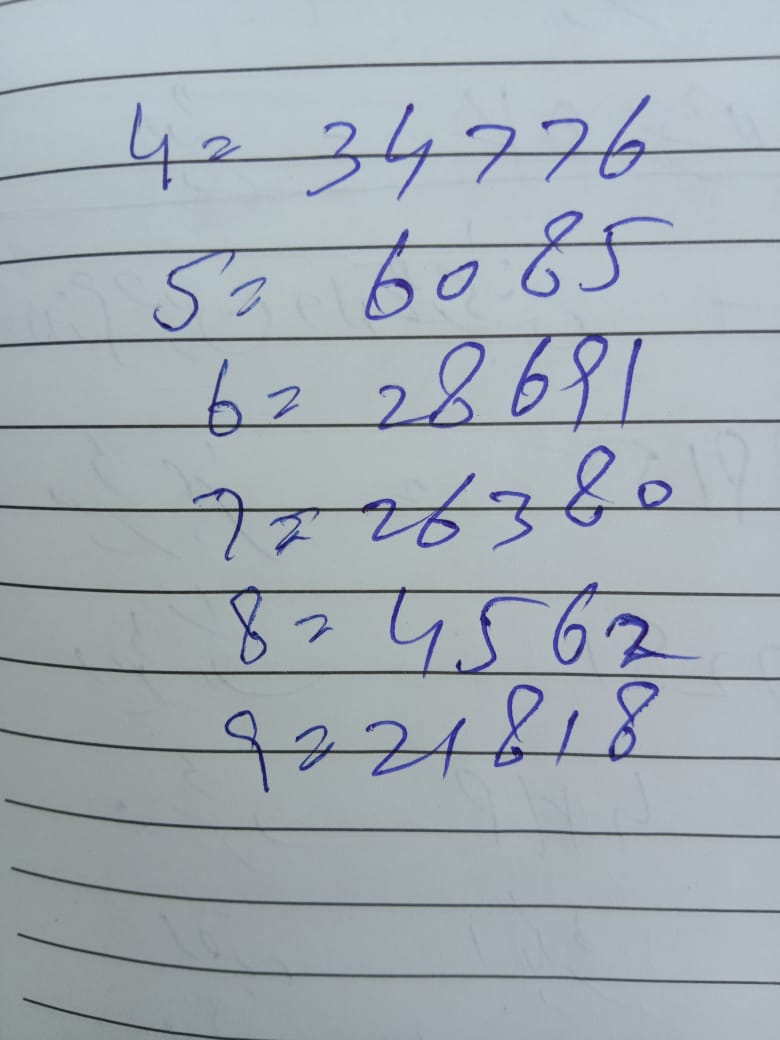 4= 34776
5= 6085
6= 28691
7= 26380
8= 4562
9= 21818